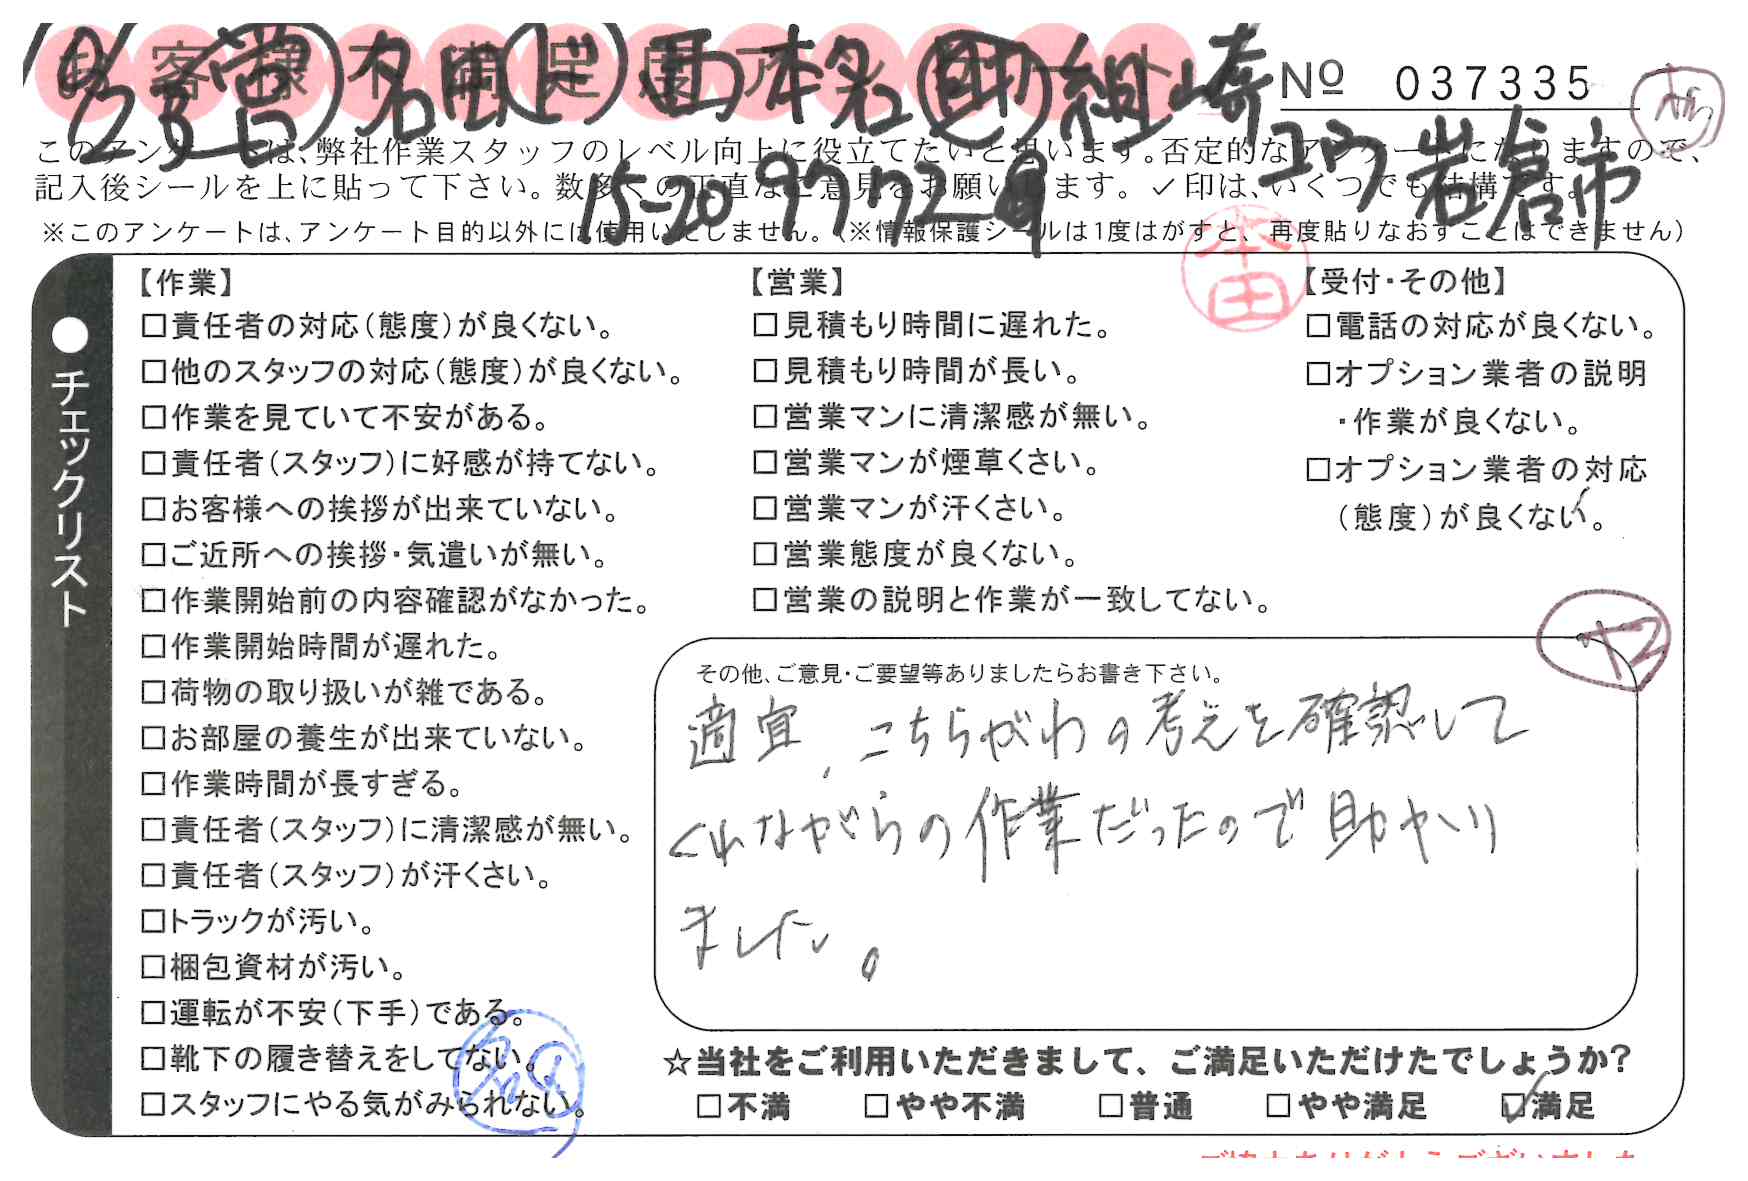 お客様不満足度アンケート
Nº 037335
このアンケートは、弊社作業スタッフのレベル向上に役立てたいと思います。否定的なアンケートになりますので、
記入後シールを上に貼って下さい。数多くの正直なご意見をお願いします。✓印は、いくつでも結構です。
岩倉市
※このアンケートは、アンケート目的以外には使用いたしません。（※情報保護シールは1度はがすと、再度貼りなおすことはできません）
本田
●チェックリスト
【作業】
□責任者の対応（態度）が良くない。
□他のスタッフの対応（態度）が良くない。
□作業を見ていて不安がある。
□責任者（スタッフ）に好感が持てない。
□お客様への挨拶が出来ていない。
□ご近所への挨拶・気遣いが無い。
□作業開始前の内容確認がなかった。
□作業開始時間が遅れた。
□荷物の取り扱いが雑である。
□お部屋の養生が出来ていない。
□作業時間が長すぎる。
□責任者（スタッフ）に清潔感が無い。
□責任者（スタッフ）が汗くさい。
□トラックが汚い。
□梱包資材が汚い。
□運転が不安（下手）である。
□靴下の履き替えをしてない。
□スタッフにやる気がみられない。
【営業】
□見積もり時間に遅れた。
□見積もり時間が長い。
□営業マンに清潔感が無い。
□営業マンが煙草くさい。
□営業マンが汗くさい。
□営業態度が良くない。
□営業の説明と作業が一致してない。
【受付・その他】
□電話の対応が良くない。
□オプション業者の説明
・作業が良くない。
□オプション業者の対応
（態度）が良くない。
その他、ご意見・ご要望等ありましたらお書き下さい。
適宜、こちらがわの考えを確認して
くれながらの作業だったので助かり
ました。
☆当社をご利用いただきまして、ご満足いただけたでしょうか？
□不満 □やや不満 □普通 □やや満足 ☑満足